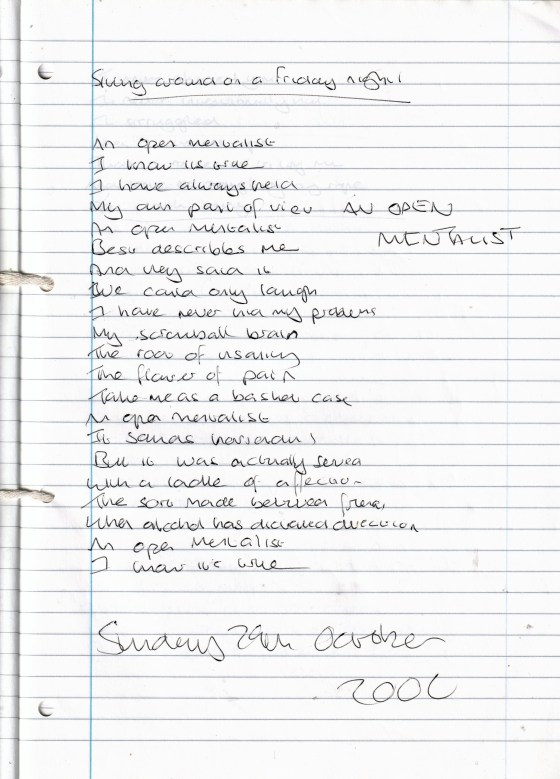 Sitting around on a Friday night
An open mentalist
I know its true
I have always held
My own point of view
AN OPEN
MENTALIST
An open mentalist
Best describes me
And they said it
We could only laugh
I have never hid my problems
My screwball brain
The root of insanity
The flower of pain
Take me as a basket case
An open mentalist
It sounds horrid
But it was actually served
With a ladle of affection
The sort made between friends
When alcohol has dictated direction
An open mentalist
I know it's true
Sunday 29th October
2006